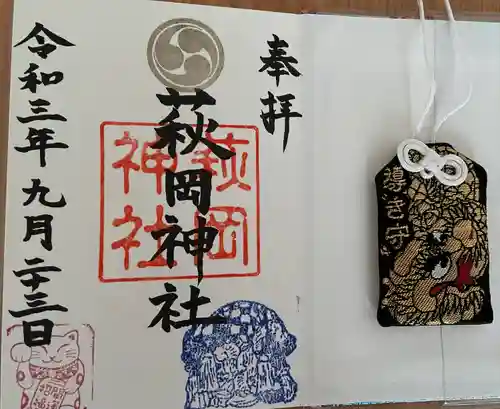 奉拝
萩岡神社
萩岡
神社
令和三年九月二十三日
導き守